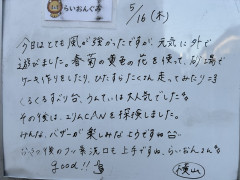 らいおんぐみ
5/16(木)
今日はとても風が強かったですが、元気に外で
遊びました。春菊の黄色の花を使って、砂場で
ケーキ作りをしたり、ひたすらたくさん走ってみたり
くるくるすべり台、うんていは大人気でした。
その後は、エリムLANを探検しました。
けんな、バザーが楽しみなようですね
の後のフッ素洗口も上手ですね、らいおんさん。
good!!
横山